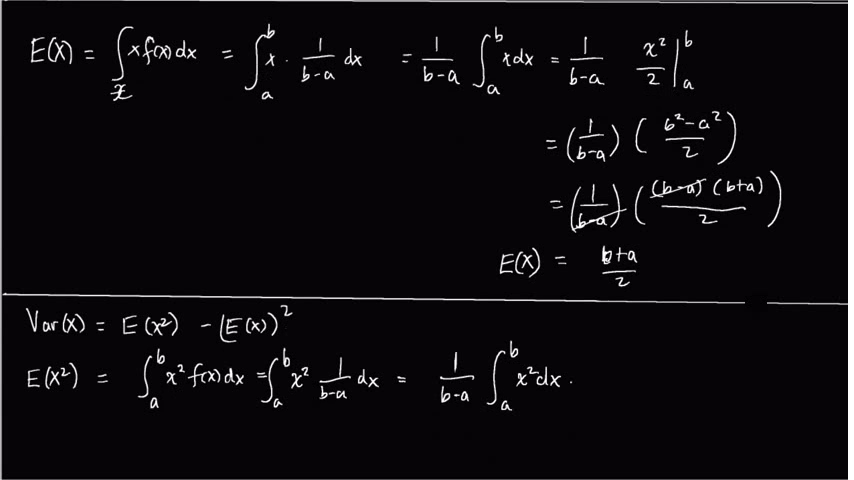 E(X) = ∫_𝒳 x f(x) dx = ∫_a^b x · 1/(b-a) dx = 1/(b-a) ∫_a^b x dx = 1/(b-a) x²/2 |_a^b
= (1/(b-a)) ((b²-a²)/2)
= (1/(b-a)) ((b-a)(b+a)/2)
E(X) = (b+a)/2
Var(X) = E(X²) - (E(X))²
E(X²) = ∫_a^b x² f(x) dx = ∫_a^b x² 1/(b-a) dx = 1/(b-a) ∫_a^b x² dx .